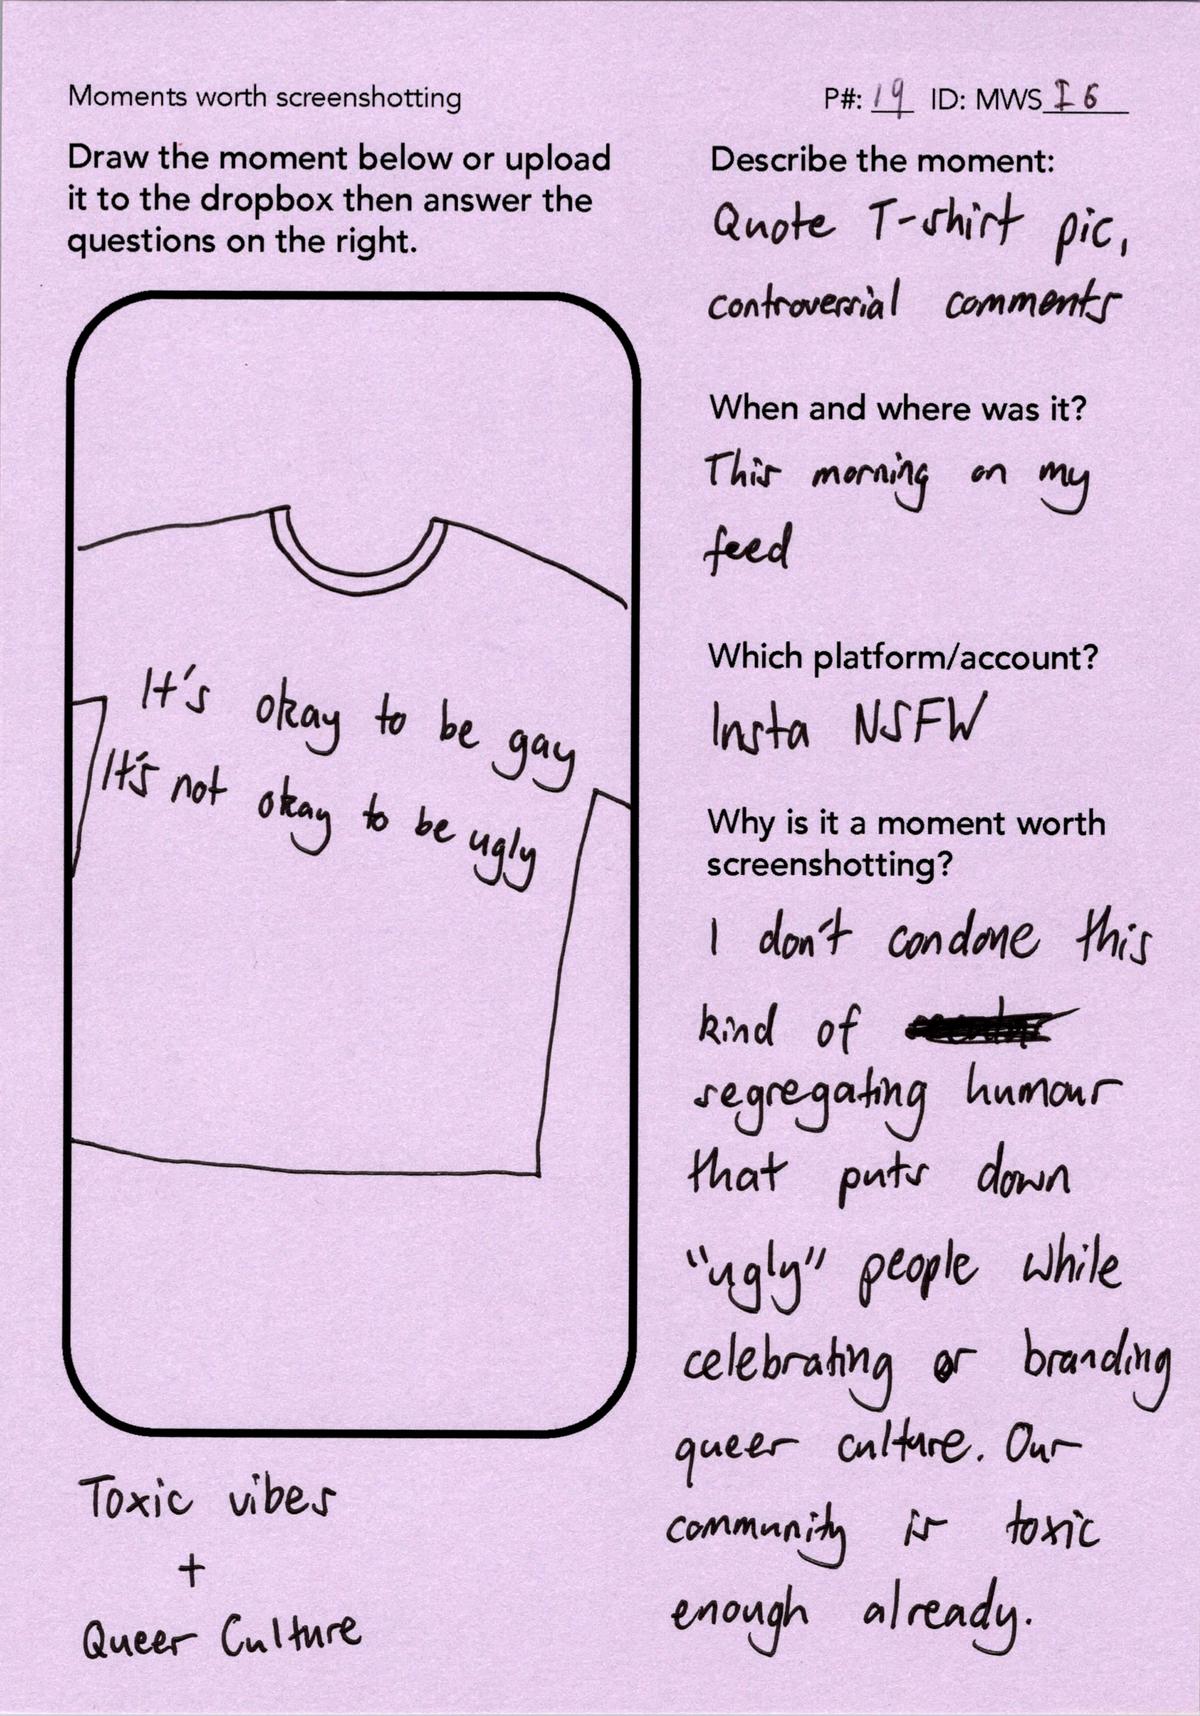 Moments worth screenshotting
P#: 19 ID: MWS I6
Draw the moment below or upload
it to the dropbox then answer the
questions on the right.
It's okay to be gay
It's not okay to be ugly
Toxic vibes
+
Queer Culture
Describe the moment:
Quote T-shirt pic,
controversial comments
When and where was it?
This morning on my
feed
Which platform/account?
Insta NSFW
Why is it a moment worth
screenshotting?
I don't condone this
kind of
segregating humour
that puts down
"ugly" people while
celebrating or branding
queer culture. Our
community is toxic
enough already.